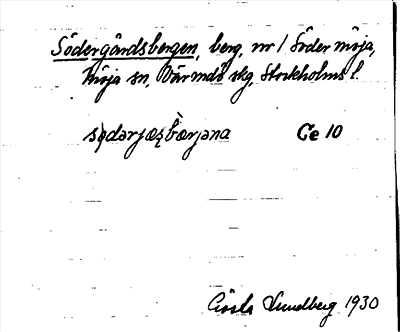 Södergårdsbergen, berg, nr 1 Söder möja,
Möja sn, Värmdö skg, Stockholms l.
Ce 10
Gösta Lundberg 1930